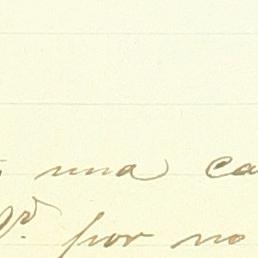 una ca
Vd. por no